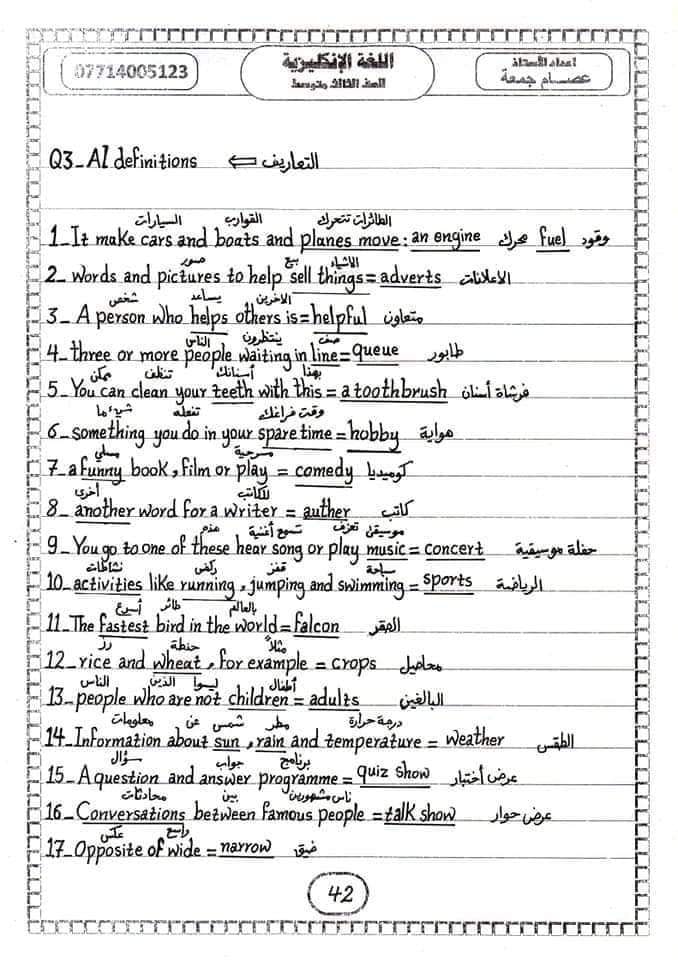 07714005123 اللغة الإنكليزية اعداد الأستاذ
الصف الثالث متوسط عصام جمعة
Q3_A1 definitions ⇐ التعاريف
السيارات القوارب الطائرات تتحرك
1_It make cars and boats and planes move: an engine محرك fuel وقود
صور بيع الاشياء
2_words and pictures to help sell things= adverts الاعلانات
شخص يساعد الاخرين
3_ A person who helps others is=helpful متعاون
الناس ينتظرون صف
4_three or more people waiting in line=queue طابور
ممكن تنظف أسنانك بهذا
5_You can clean your teeth with this = a toothbrush فرشاة أسنان
شيء ما تفعله وقت فراغك
6_something you do in your spare time = hobby هواية
مسلي مسرحية
7_a funny book, film or play = comedy كوميديا
أخرى للكاتب
8_another word for a writer = auther كاتب
تسمع أغنية تعزف موسيقى
9_You go to one of these hear song or play music= concert حفلة موسيقية
نشاطات ركض قفز سباحة
10_activities like running, jumping and swimming= sports الرياضة
أسرع طائر بالعالم
11_The fastest bird in the world=falcon الصقر
رز حنطة مثلاً
12_rice and wheat, for example = crops محاصيل
الناس الذين ليسوا أطفال
13_people who are not children = adults البالغين
معلومات عن شمس مطر درجة حرارة
14_Information about sun, rain and temperature = weather الطقس
سؤال جواب برنامج
15_A question and answer programme = quiz show عرض أختبار
محادثات بين ناس مشهورين
16_Conversations between famous people =talk show عرض حوار
عكس واسع
17_Opposite of wide = narrow ضيق
42